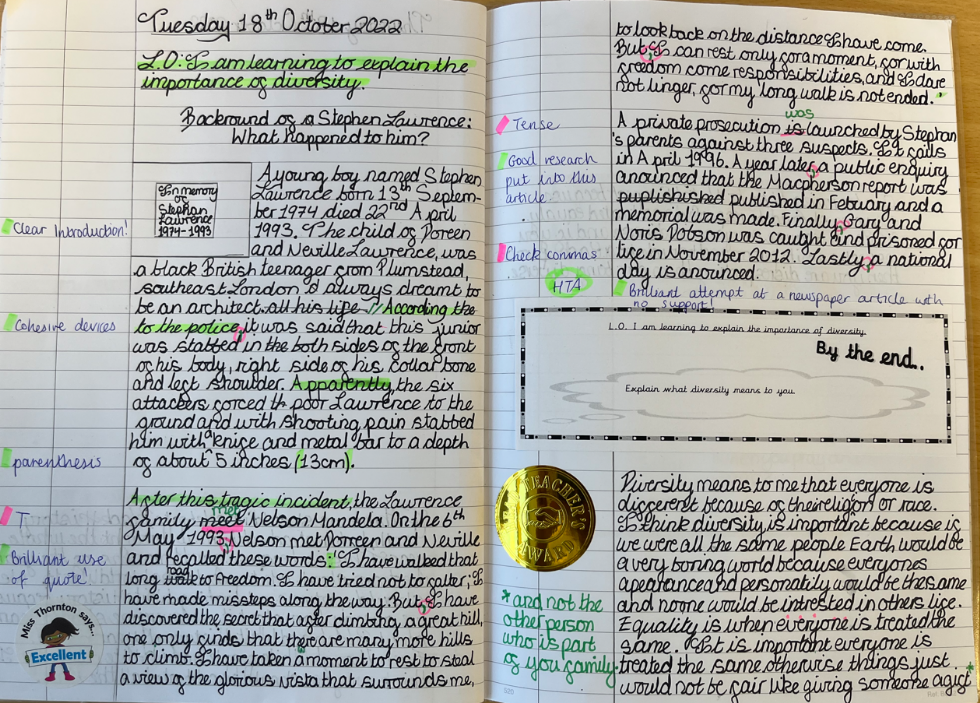 Tuesday 18th October 2022
L.O: I am learning to explain the
importance of diversity.
Backround of a Stephen Lawrence:
What happened to him?
In memory
of
Stephan
Lawrence
1974-1993
A young boy named Stephen
Lawrence born 13th Septem-
ber 1974, died 22nd April
1993. The child of Doreen
and Neville Lawrence, was
a black British teenager from Plumstead,
southeast London's always dreamt to
be an architect all his life. // According the
to the police, it was said that this junior
was stabbed in the both sides of the front
of his body, right side of his collar bone
and left shoulder. Apparently, the six
attackers forced th poor Lawrence to the
ground and with shooting pain stabbed
him with a knife and metal bar to a depth
of about 5 inches (13cm).
After this tragic incident, the Lawrence
met
family meet Nelson Mandela. On the 6th
May 1993, Nelson met Doreen and Neville
and recalled these words: "I have walked that
road
long walk to freedom. I have tried not to falter; I
have made missteps along the way. But I have
discovered the secret that after climbing a great hill,
one only finds that there are many more hills
to climb. I have taken a moment to rest to steal
a view of the glorious vista that surrounds me,
Clear Introduction!
Cohesive devices
parenthesis
T
Brilliant use
of quote!
Miss Thornton says...
Excellent
to look back on the distance I have come.
But I can rest only for a moment, for with
freedom come responsibilities, and I dare
not linger, for my long walk is not ended."
was
A private prosecution is launched by Stephan
's parents against three suspects. It fails
in April 1996. A year later, a public enquiry
anounced that the Macpherson report was
puplishished published in Febuary and a
memorial was made. Finally, Gary and
Noris Dobson was caught and prisoned for
life in November 2012. Lastly, a national
day is anounced.
Tense
Good research
put into this
article
Check commas
HTA
Brilliant attempt at a newspaper article with
no support!
L.O. I am learning to explain the importance of diversity
By the end...
Explain what diversity means to you.
TEACHER'S
AWARD
Diversity means to me that everyone is
different because of their religion or race.
I think diversity is important because if
we were all the same people Earth would be
a very boring world because everyones
apearance and personatily would be the same
and noone would be intrested in others life.
Equality is when everyone is treated the
same. It is important everyone is
treated the same otherwise things just
would not be fair like giving someone a gift*
*and not the
other person
who is part
of you family